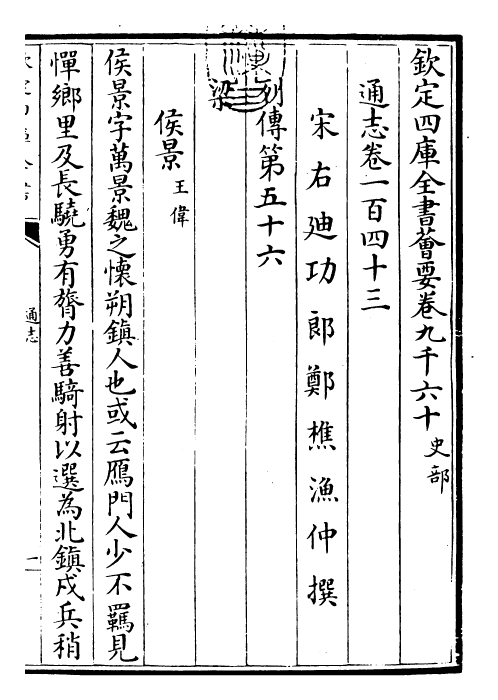 欽定四庫全書薈要卷九千六十 史部
通志卷一百四十三
宋右迪功郎鄭樵漁仲撰
列傳第五十六
梁
侯景 王偉
侯景字萬景魏之懷朔鎮人也或云鴈門人少不羈見
憚鄉里及長驍勇有膂力善騎射以選為北鎮戍兵稍
通志
一